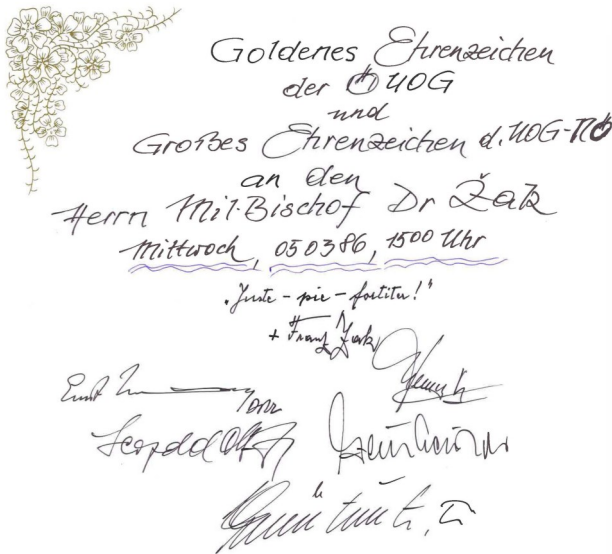 Goldenes Ehrenzeichen
der ÖUOG
und
Großes Ehrenzeichen d. UOG-NÖ
an den
Herrn Mil.Bischof Dr Žak
Mittwoch, 050386, 1500 Uhr
"Juste - pie - fortiter!"
+ Franz Žak
Ernst
Leopold